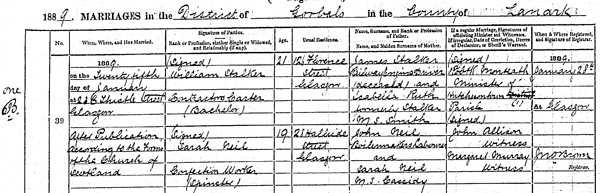 1889. MARRIAGES in the District of Gorbals in the County of Lanark.
No. When, Where, and How Married. Signatures of Parties. Rank or Profession, whether Single or Widowed, and Relationship (if any). Age. Usual Residence. Name, Surname, and Rank or Profession of Father. Name, and Maiden Surname of Mother. If a regular Marriage, Signatures of officiating Minister and Witnesses. If irregular, Date of Conviction, Decree of Declarator, or Sheriff's Warrant. When & Where Registered, and Signature of Registrar.
one
B.
39
1889.
on the Twenty fifth
day of January
at 226 Thistle Street
Glasgow
After Publication
according to the Forms
of the Church of
Scotland
(Signed)
William Stalker
Contractors Carter
(Bachelor)
(Signed)
Sarah Neil
Confection Worker
(Spinster)
21
19
Florence
Street
Glasgow
Street
Glasgow
James Stalker
Railway Engine Driver
(deceased) and
Isabella
formerly Stalker
M.S. Smith
John Neil
Boilermakers Labourer
and
Sarah Neil
M.S. Cassidy
(Signed)
Minister of
Hutchesontown
Parish
(Signed)
John Allison
witness
Margaret Murray
witness
1889
January 28th
At Glasgow
Registrar.